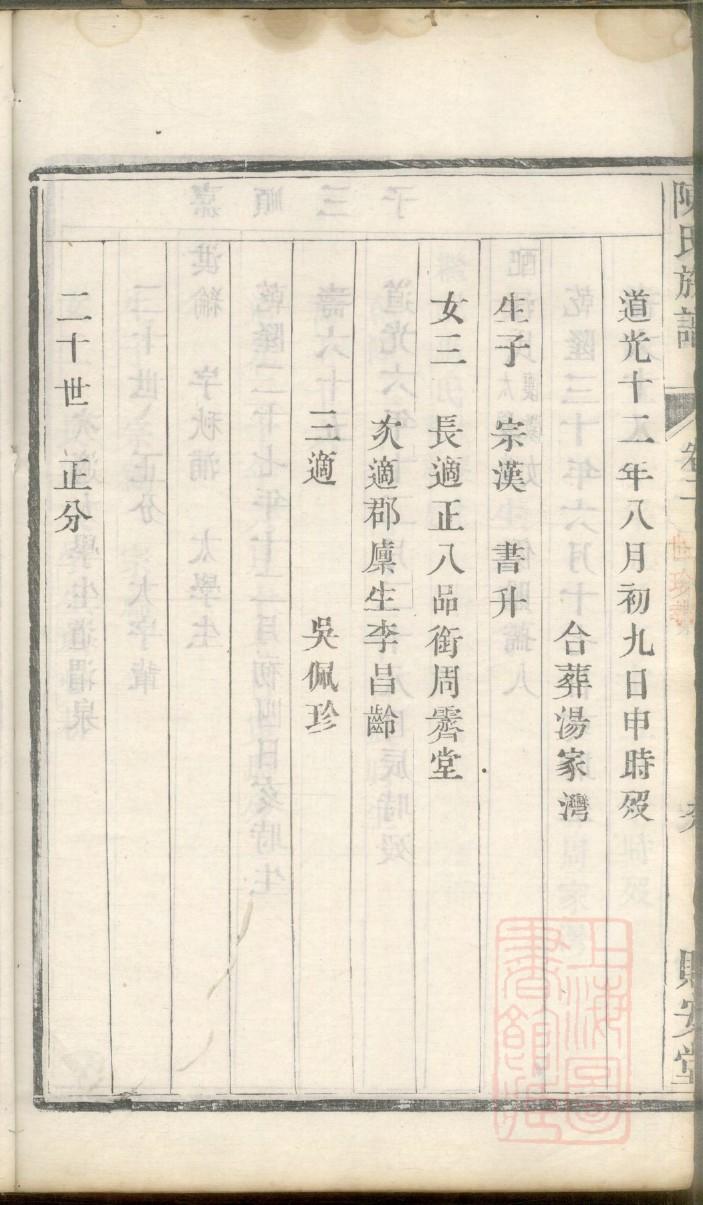 陳氏族譜
卷二
道光十二年八月初九日申時歿
合葬湯家灣
生子 宗漢 書升
女三 長適正八品銜周霽堂
次適郡廩生李昌齡
三適 吳佩珍
二十世 正分
上海圖書館藏